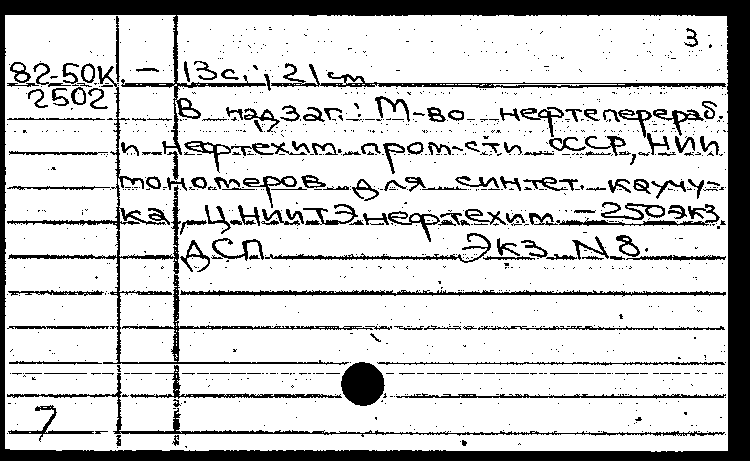 3.
82-50К. - 13с.; 21 см
2502
В надзаг.: М-во нефтеперераб.
и нефтехим. пром-сти СССР, НИИ
мономеров для синтет. каучу-
ка, ЦНИИТЭнефтехим. - 250экз.
ДСП. Экз. N8.
7